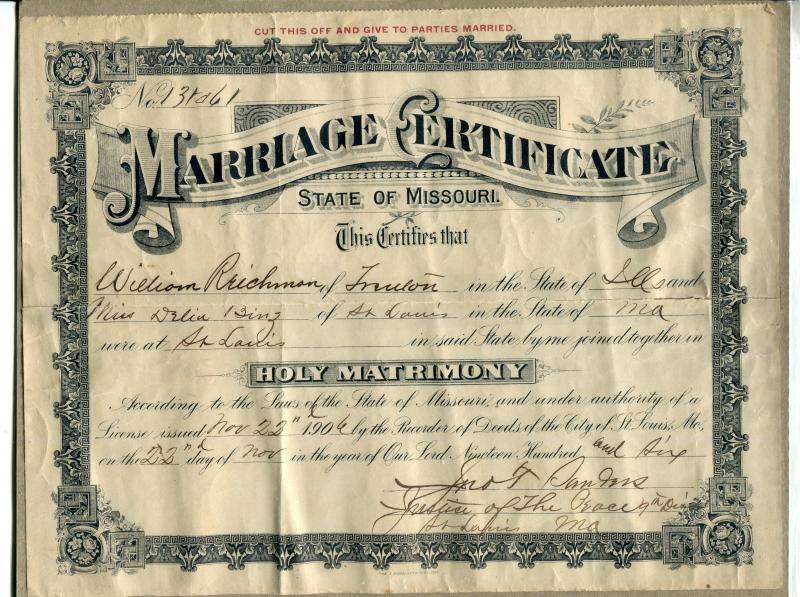 CUT THIS OFF AND GIVE TO PARTIES MARRIED.
No.
MARRIAGE CERTIFICATE
STATE OF MISSOURI.
This Certifies that
William Reichman of Trenton in the State of Ills and
Miss Delia Bing of St Louis in the State of Mo
were at St Louis in said State by me joined together in
HOLY MATRIMONY
According to the Laws of the State of Missouri, and under authority of a
License issued Nov 22nd 1906 by the Recorder of Deeds of the City of St. Louis, Mo.
on the 22nd day of Nov in the year of Our Lord Nineteen Hundred and Six
Jno T Sanders
Justice of The Peace 9th Dis
St Louis Mo